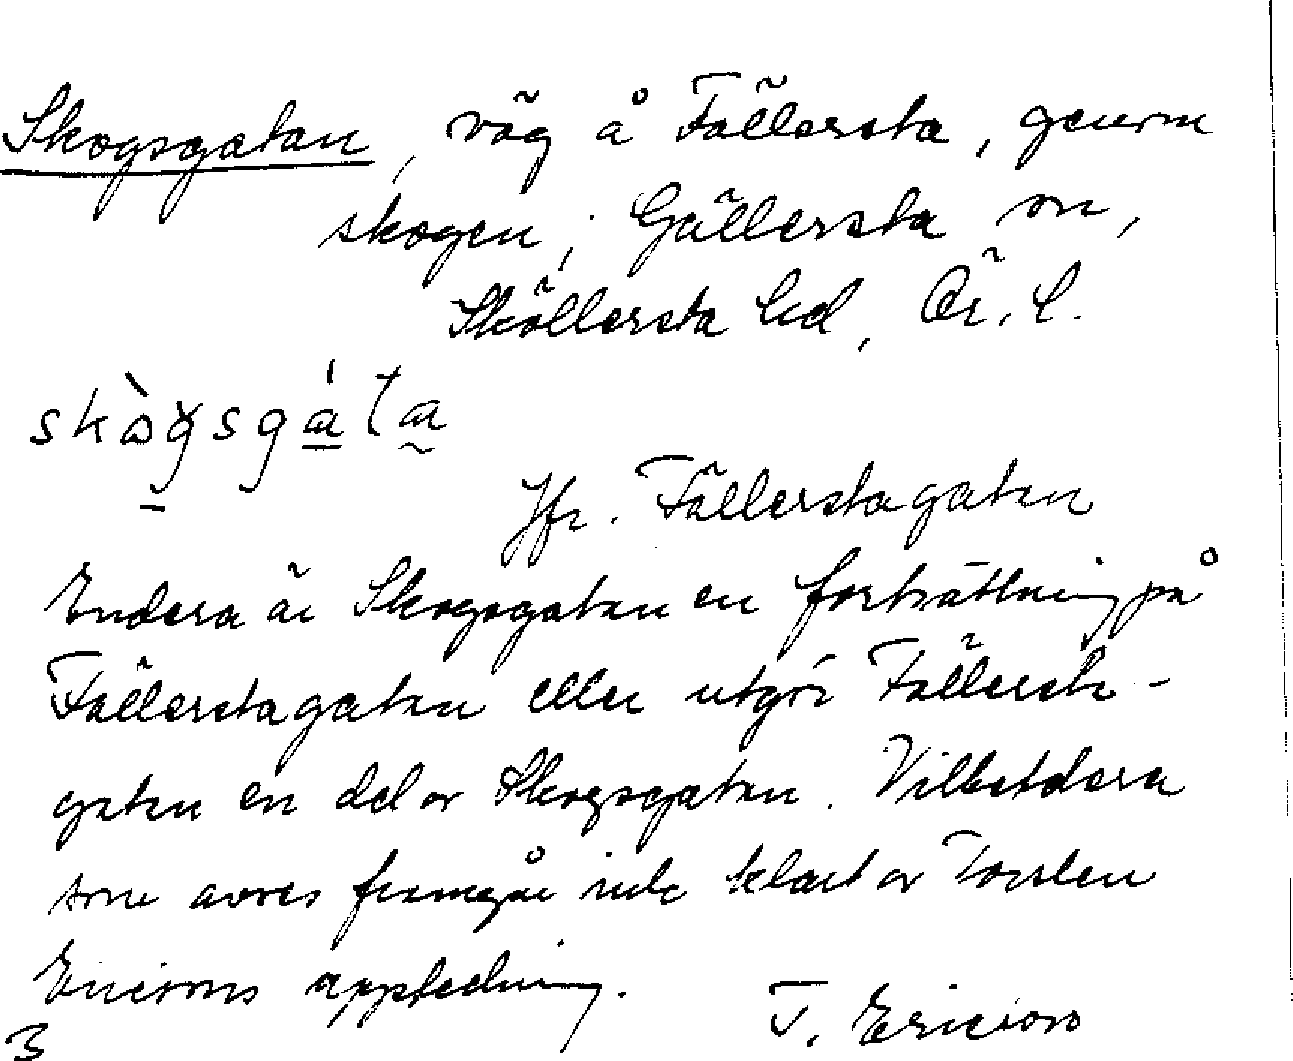 Skogsgatan, väg å Fällersta, genom
skogen; Gällersta sn,
Sköllersta hd, Ör. l.
skò̱gsgá̱ta̰
Jfr. Fällerstagatan
Endera är Skogsgatan en fortsättning på
Fällerstagatan eller utgör Fällersta-
gatan en del av Skogsgatan. Vilketdera
som avses framgår inte klart av Torsten
Ericsons uppteckning.
T. Ericson
3